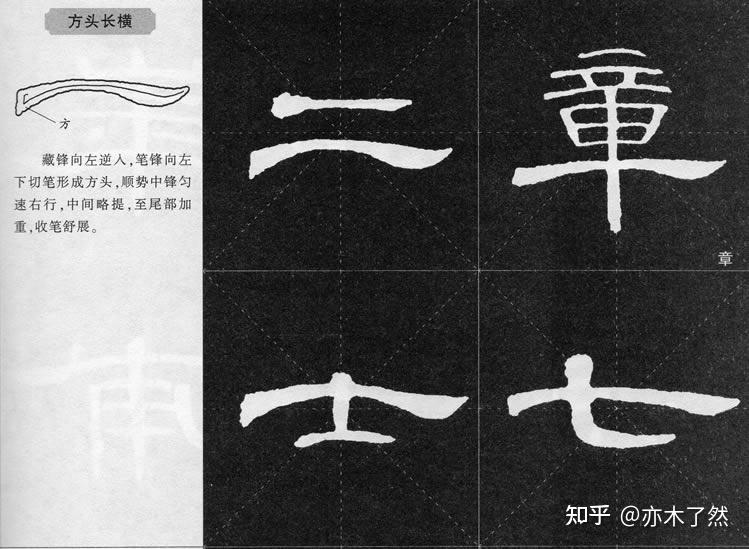 方头长横
方
藏锋向左逆入,笔锋向左
下切笔形成方头,顺势中锋匀
速右行,中间略提,至尾部加
重,收笔舒展。
二
章
章
士
七
知乎 @亦木了然